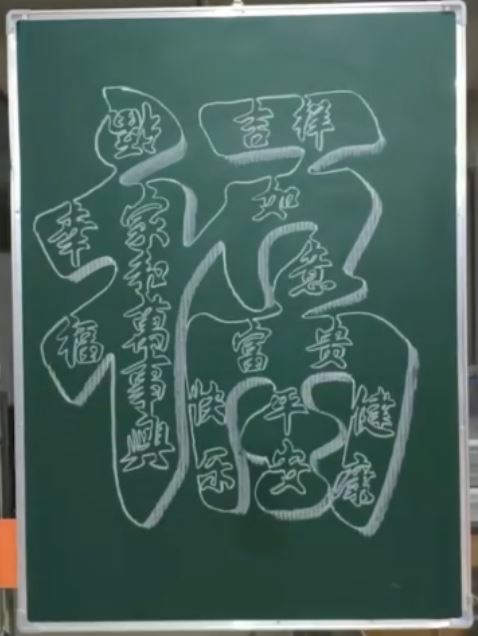 吉祥
如
意
幸
福
家和萬事興
富贵
快乐
平安
健康